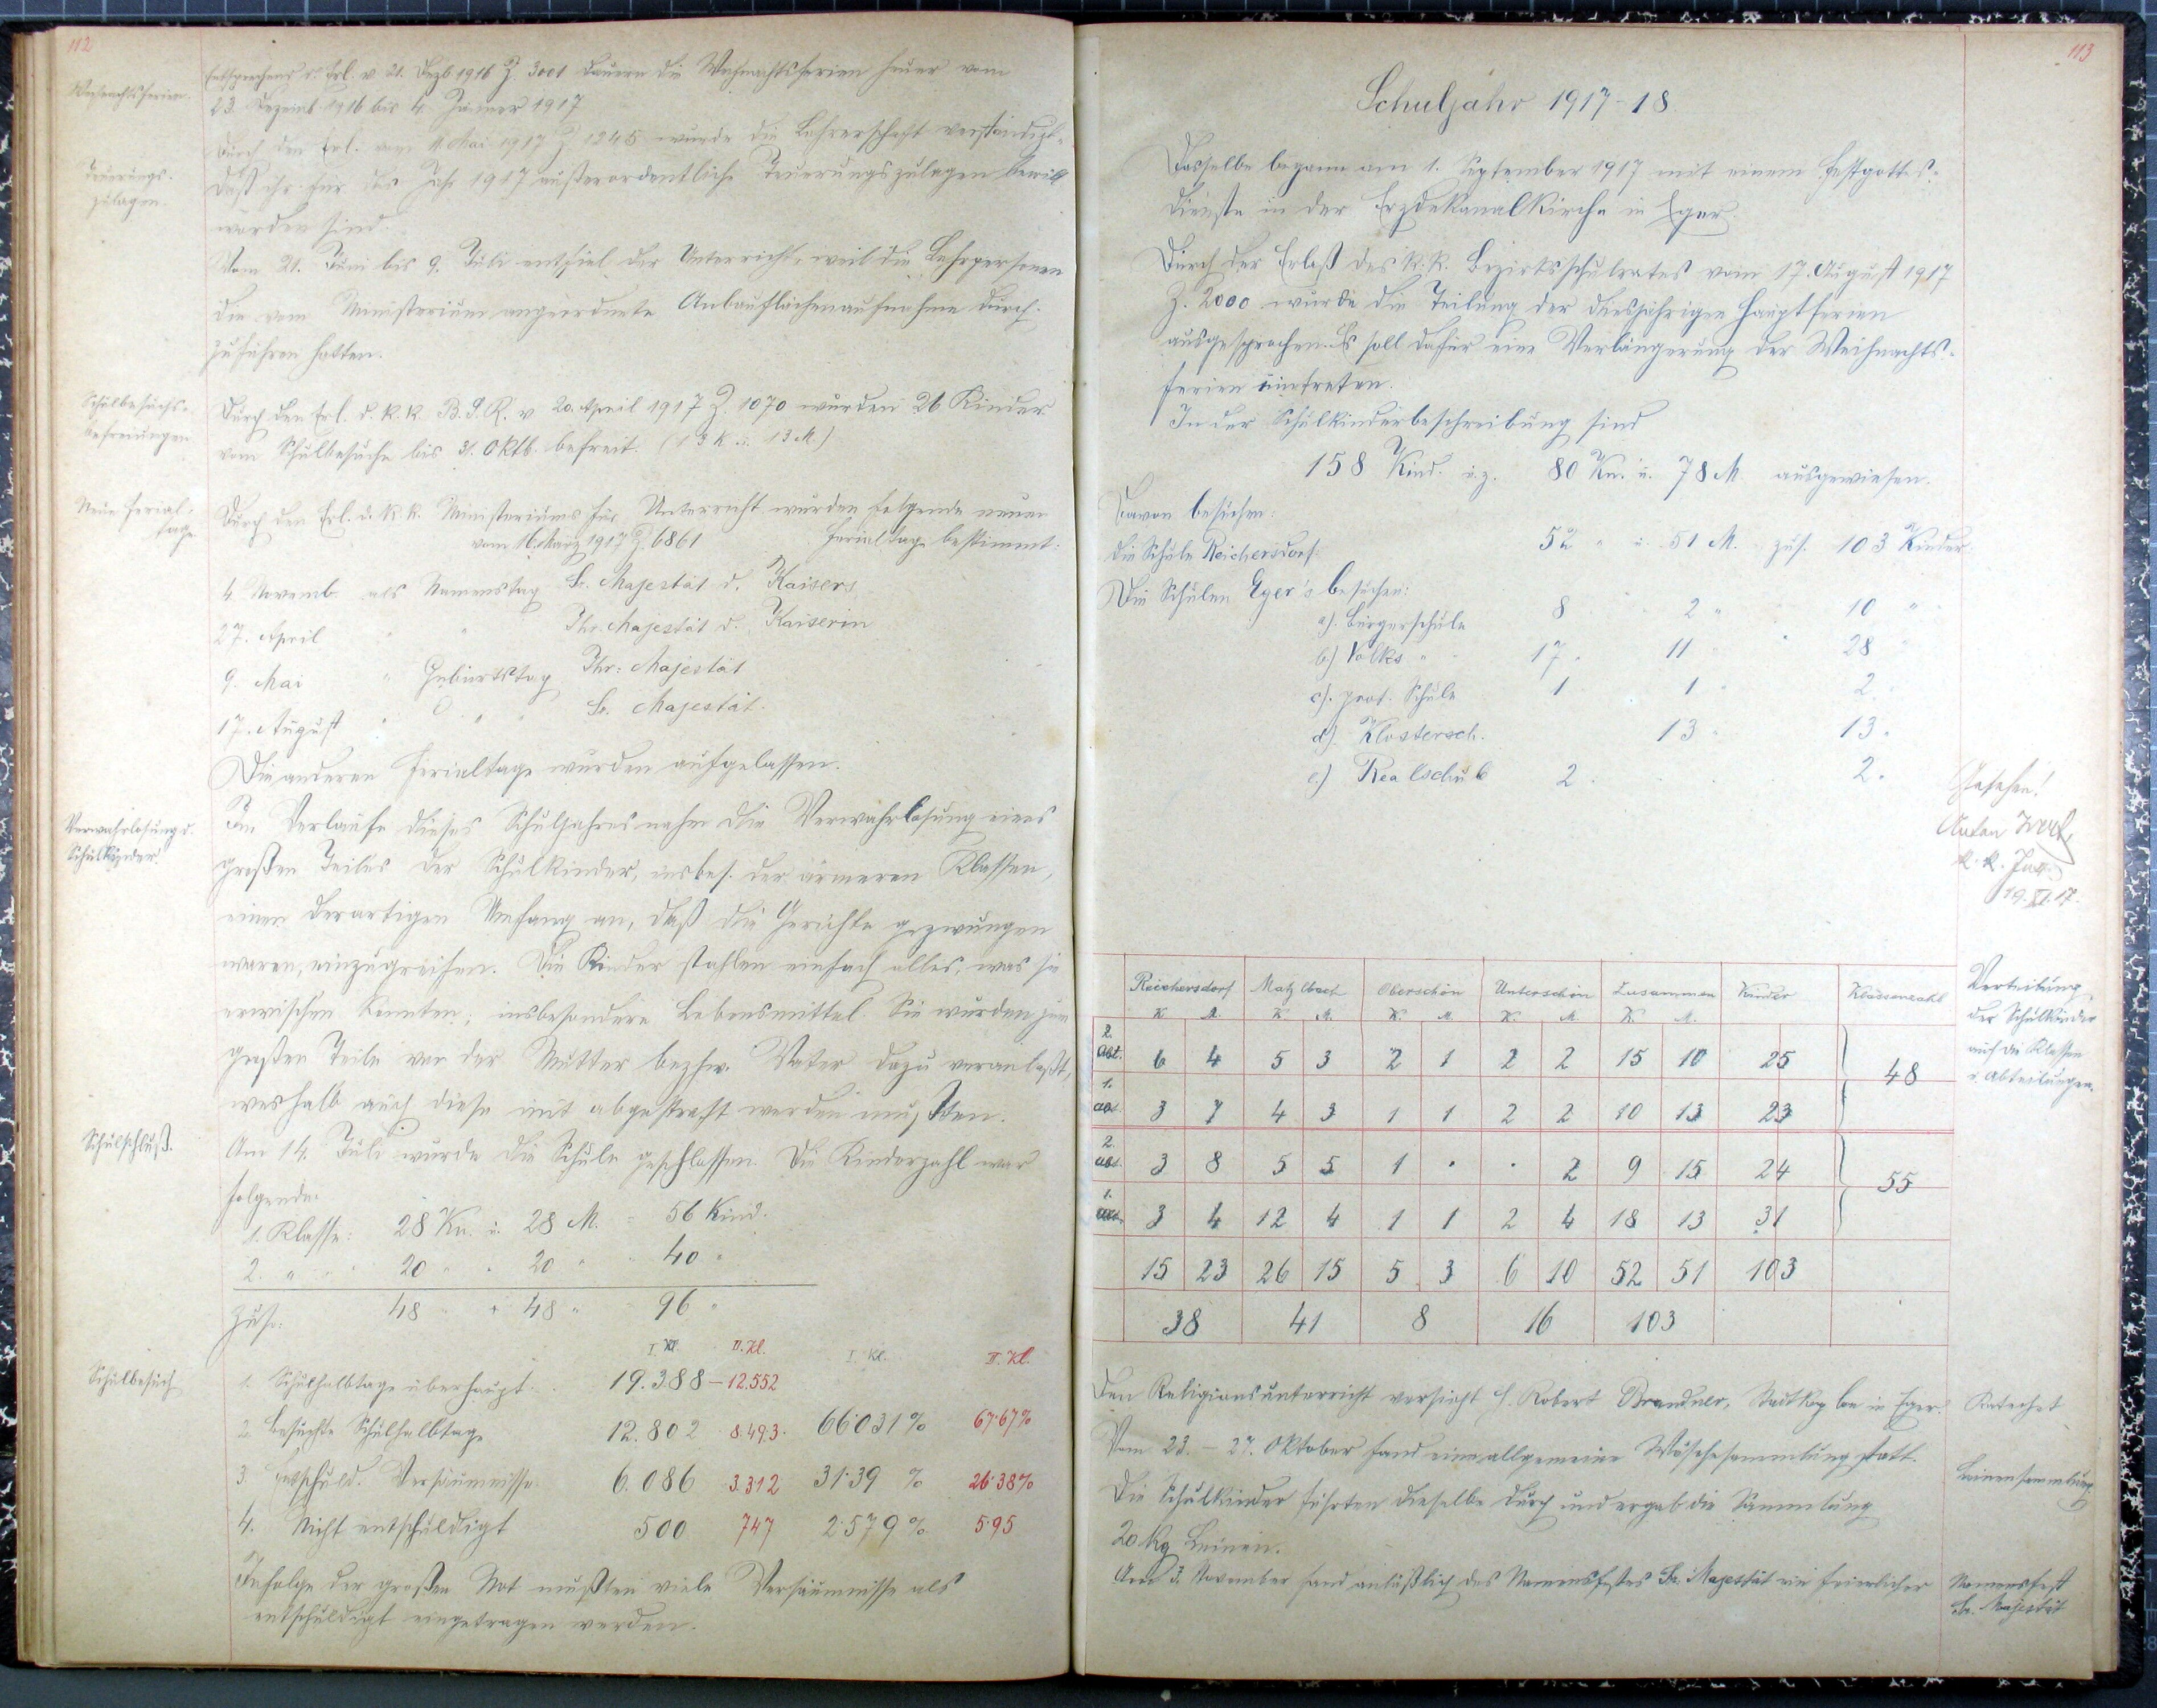 112
Weihnachtsferien.
Entsprechend d. Erl. v. 21. Dezb 1916 Z. 3001 dauern die Weihnachtsferien heuer vom
23. Dezemb. 1916 bis 4. Jänner 1917
Durch den Erl. vom 11. Mai 1917 Z. 1245 wurde die Lehrerschaft verständigt,
Teuerungs-
zulagen.
daß ihr für das Jahr 1917 außerordentliche Teuerungszulagen bewill
worden sind.
Vom 21. Juni bis 9. Juli entfiel der Unterricht, weil die Lehrpersonen
die vom Ministerium angeordnete Anbauflächenaufnahme durch-
zuführen hatten.
Schulbesuchs-
befreiungen
Durch den Erl. d. k. k. B.S.R. v. 20. April 1917 Z. 1070 wurden 26 Kinder
vom Schulbesuche bis 31. Oktb. befreit. (13 K. u. 13 M.)
Neue Ferial-
tage
Durch den Erl. d. k. k. Ministeriums für Unterricht wurden folgende neuen
vom 16. März 1917 Z. 6861 Ferialtage bestimmt:
4. Novemb. als Namenstag Sr. Majestät d. Kaisers
27. April " " Ihr. Majestät d. Kaiserin
9. Mai " Geburtstag Ihr. Majestät
17. August " " " Sr. Majestät.
Die anderen Ferialtage wurden aufgelassen.
Verwahrlosung d.
Schulkinder.
Im Verlaufe dieses Schuljahres nahm die Verwahrlosung eines
großen Teiles der Schulkinder, insbes. der ärmeren Klassen,
einen derartigen Umfang an, daß die Gerichte gezwungen
waren, einzugreifen. Die Kinder stahlen einfach alles, was sie
erwischen konnten; insbesondere Lebensmittel. Sie wurden zum
großen Teile von der Mutter bezhw. Vater dazu veranlaßt,
weshalb auch diese mit abgestraft werden mußten.
Schulschluß.
Am 14. Juli wurde die Schule geschlossen. Die Kinderzahl war
folgende:
1. Klasse: 28 Kn. u. 28 M. = 56 Kind.
2. " 20 " " 20 " " 40 "
Zus.: 48 " + 48 " = 96 "
Schulbesuch
I. Kl. II. Kl. I. Kl. II. Kl.
1. Schulhalbtage überhaupt 19.388 – 12.552
2. Besuchte Schulhalbtage 12.802 8.493. 66·031 % 67·67%
3. Entschuld. Versäumnisse 6.086 3.312 31·39 % 26·38%
4. Nicht entschuldigt 500 747 2·579 % 5·95
Infolge der großen Not mußten viele Versäumnisse als
entschuldigt eingetragen werden.
113
Schuljahr 1917-18.
Dasselbe begann am 1. September 1917 mit einem Festgottes-
dienste in der Erzdekanalkirche in Eger.
Durch der Erlaß des k. k. Bezirksschulrates vom 17. August 1917
Z. 2000 wurde die Teilung der diesjährigen Hauptferien
ausgesprochen. Es soll dafür eine Verlängerung der Weihnachts-
ferien eintreten.
In der Schulkinderbeschreibung sind
158 Kind. u. z. 80 Kn. u. 78 M ausgewiesen.
Davon besuchen:
die Schule Reichersdorf: 52 " u. 51 M. zus. 103 Kinder
Die Schulen Eger's besuchen:
a). Bürgerschule 8 2 " 10 "
b) Volks " 17 " 11 " 28 "
c). prot. Schule 1 1 " 2 "
d). Klostersch. 13 " 13 "
e.) Realschule 2 . . 2 "
Gesehen!
Anton
k. k.
19. XI. 17.
Verteilung
der Schulkinder
auf die Klassen
u. Abteilungen.
Reichersdorf Matzlbach Oberschön Unterschön Zusammen Kinder Klassenzahl
K M. K. M. K. M. K. M. K. M.
2. Abt. 6 4 5 3 2 1 2 2 15 10 25 48
1. Abt. 3 7 4 3 1 1 2 2 10 13 23
2. Abt. 3 8 5 5 1 . . 2 9 15 24 55
1. Abt. 3 4 12 4 1 1 2 4 18 13 31
15 23 26 15 5 3 6 10 52 51 103
38 41 8 16 103
Den Religionsunterricht versieht H. Robert Brandner, Stadtkaplan in Eger. Katechet
Vom 23. – 27. Oktober fand eine allgemeine Wäschesammlung statt.
Leinensammlung
Die Schulkinder führten dieselbe durch und ergab die Sammlung
20 kg Leinen.
Am 3. November fand anläßlich des Namensfestes Sr. Majestät ein feierlicher
Namensfest
Sr. Majestät